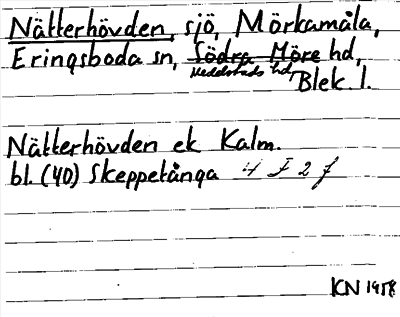 Nätterhövden, sjö, Mörkamåla,
Eringsboda sn, Södra Möre hd,
Medelstads hd, Blek. l.
Nätterhövden ek Kalm.
bl. (40) Skeppetånga 4 F 2 f
KN 1958